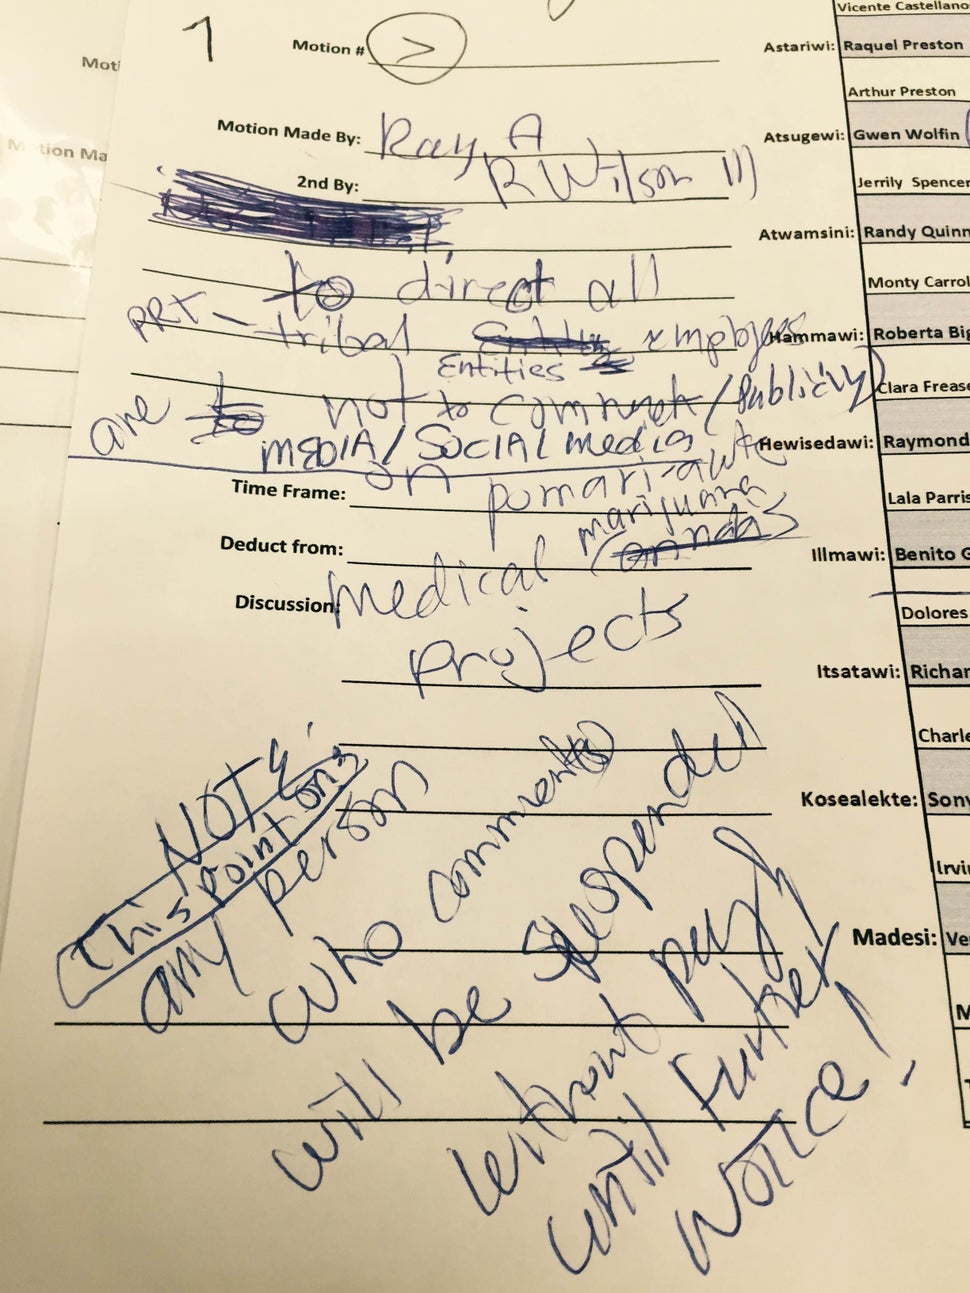 1
Motion # >
Motion Made By: Ray A
2nd By: R Wilson III
to direct all
PRT - tribal employees
Entities
are not to comment / (Publicity)
MEDIA / SOCIAL media
on
Time Frame:
Deduct from:
marijuana
Discussion: medical
projects
NOTE:
This point on,
any person
who comments
will be suspended
without pay
until further
NOTICE!
Moti
tion Ma
Vicente Castellano
Astariwi: Raquel Preston
Arthur Preston
Atsugewi: Gwen Wolfin
Jerrily Spencer
Atwamsini: Randy Quinn
Monty Carrol
Hammawi: Roberta Big
Clara Frease
Hewisedawi: Raymond
Lala Parris
Illmawi: Benito G
Dolores
Itsatawi: Richar
Charle
Kosealekte: Sony
Irvi
Madesi: Ve
M